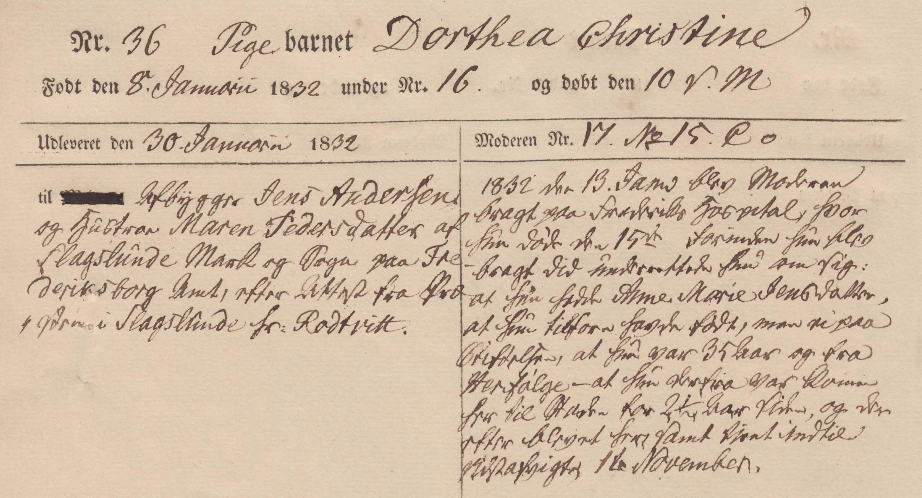 Nr. 36 Pige barnet Dorthea Christine
Født den 8. Januarii 1832 under Nr. 16. og døbt den 10 s. M
Udleveret den 30 Januarii 1832
til Afbygger Jens Andersen
og Hustrue Maren Pedersdatter af
Slagslunde Mark og Sogn paa Fre
deriksborg Amt, efter Attest fra Præ
sten i Slagslunde Hr: Rodtvitt.
Moderen Nr. 17. No 15. C o
1832 den 13. Janu blev Moderen
bragt paa Frederiks Hospital, hvor
hun døde den 15de Forinden hun blev
bragt did underrettede hun om sig:
at hun hedde Anne Marie Jensdatter,
at hun tilforn havde født, men ei paa
Stiftelsen, at hun var 35 Aar og fra
Herfølge – at hun derfra var kommen
her til Staden for 2½ Aar siden, og der
efter blevet her, samt tjent indtil
1te November.